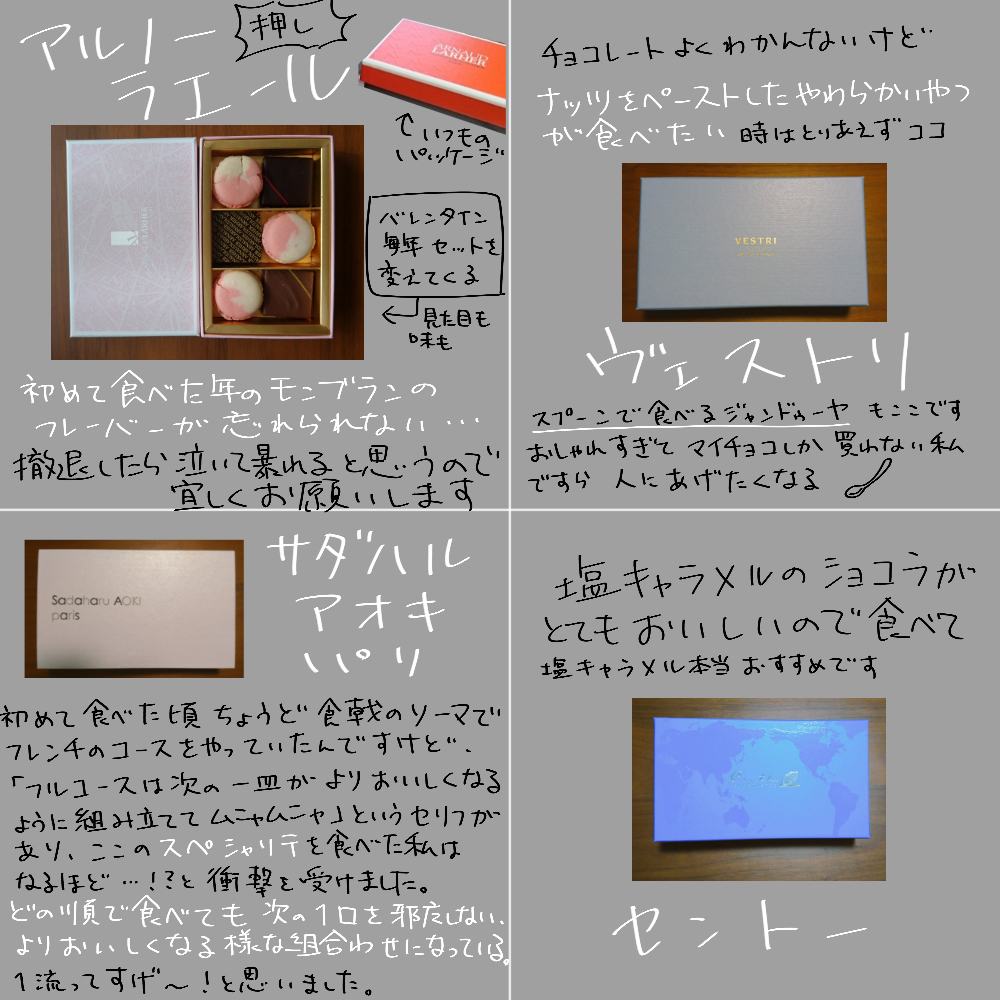 アルノー
ラエール
押し
ARNAUD
LARHER
いつもの
パッケージ
バレンタイン
毎年セットを
変えてくる
見た目も
味も
初めて食べた年のモンブランの
フレーバーが忘れられない…
撤退したら泣いて暴れると思うので
宜しくお願いします
チョコレートよくわかんないけど
ナッツをペーストしたやわらかいやつ
が食べたい 時はとりあえずココ
VESTRI
ヴェストリ
スプーンで食べるジャンドゥーヤ もここです
おしゃれすぎて マイチョコしか買わない私
ですら 人にあげたくなる
Sadaharu AOKI
paris
サダハル
アオキ
パリ
初めて食べた頃 ちょうど食戟のソーマで
フレンチのコースをやっていたんですけど、
「フルコースは次の一皿がよりおいしくなる
ように組み立ててムニャムニャ」というセリフが
あり、ここのスペシャリテを食べた私は
なるほど…!?と衝撃を受けました。
どの順で食べても 次の1口を邪魔しない、
よりおいしくなる様な組合わせになっている。
1流ってすげ〜!と思いました。
塩キャラメルのショコラが
とてもおいしいので食べて
塩キャラメル本当おすすめです
セントー